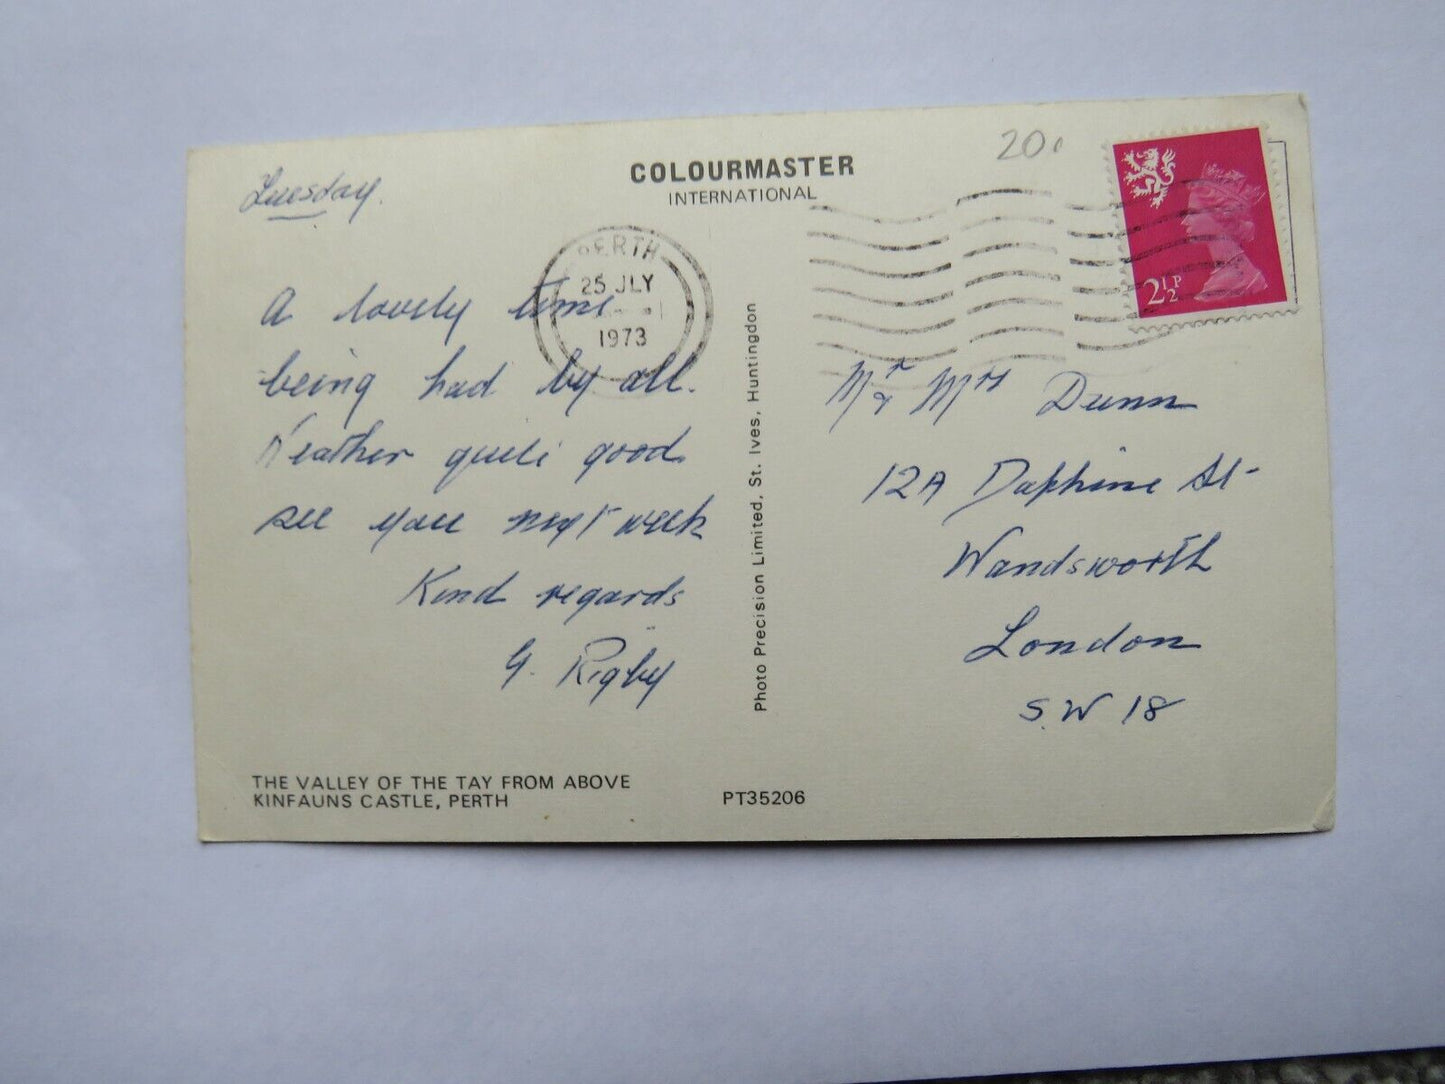 Tuesday.
COLOURMASTER
INTERNATIONAL
20
2½P
PERTH
25 JLY
1973
A lovely time
being had by all.
Weather quite good
see you next week
Kind regards
G. Rigby
Photo Precision Limited, St. Ives, Huntingdon
Mr & Mrs Dunn
12A Daphne St
Wandsworth
London
S.W 18
THE VALLEY OF THE TAY FROM ABOVE
KINFAUNS CASTLE, PERTH
PT35206